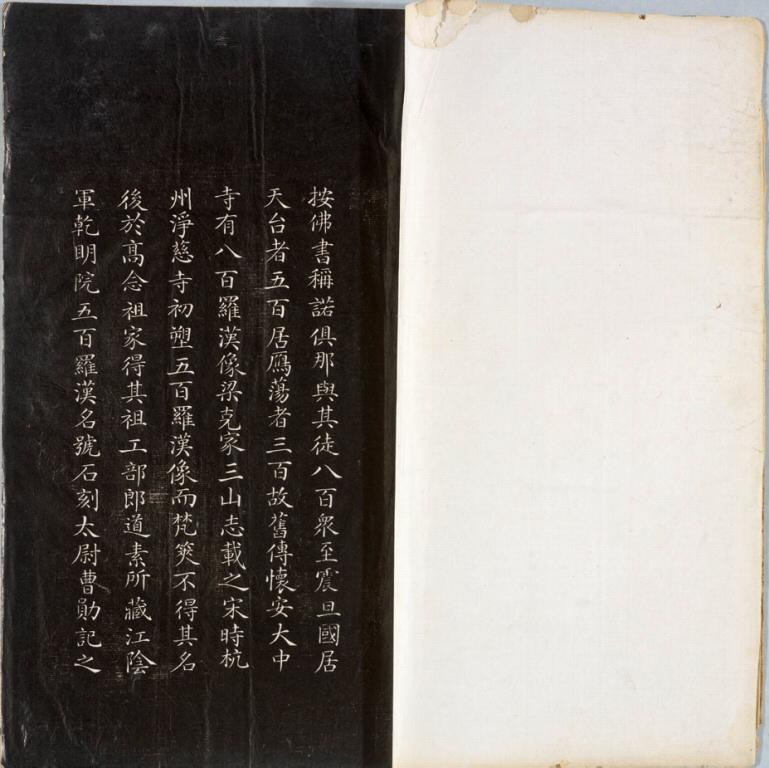 按佛書稱諾俱那與其徒八百衆至震旦國居
天台者五百居鴈蕩者三百故舊傳懷安大中
寺有八百羅漢像梁克家三山志載之宋時杭
州淨慈寺初塑五百羅漢像而梵筴不得其名
後於高念祖家得其祖工部郎道素所藏江陰
軍乾明院五百羅漢名號石刻太尉曹勛記之